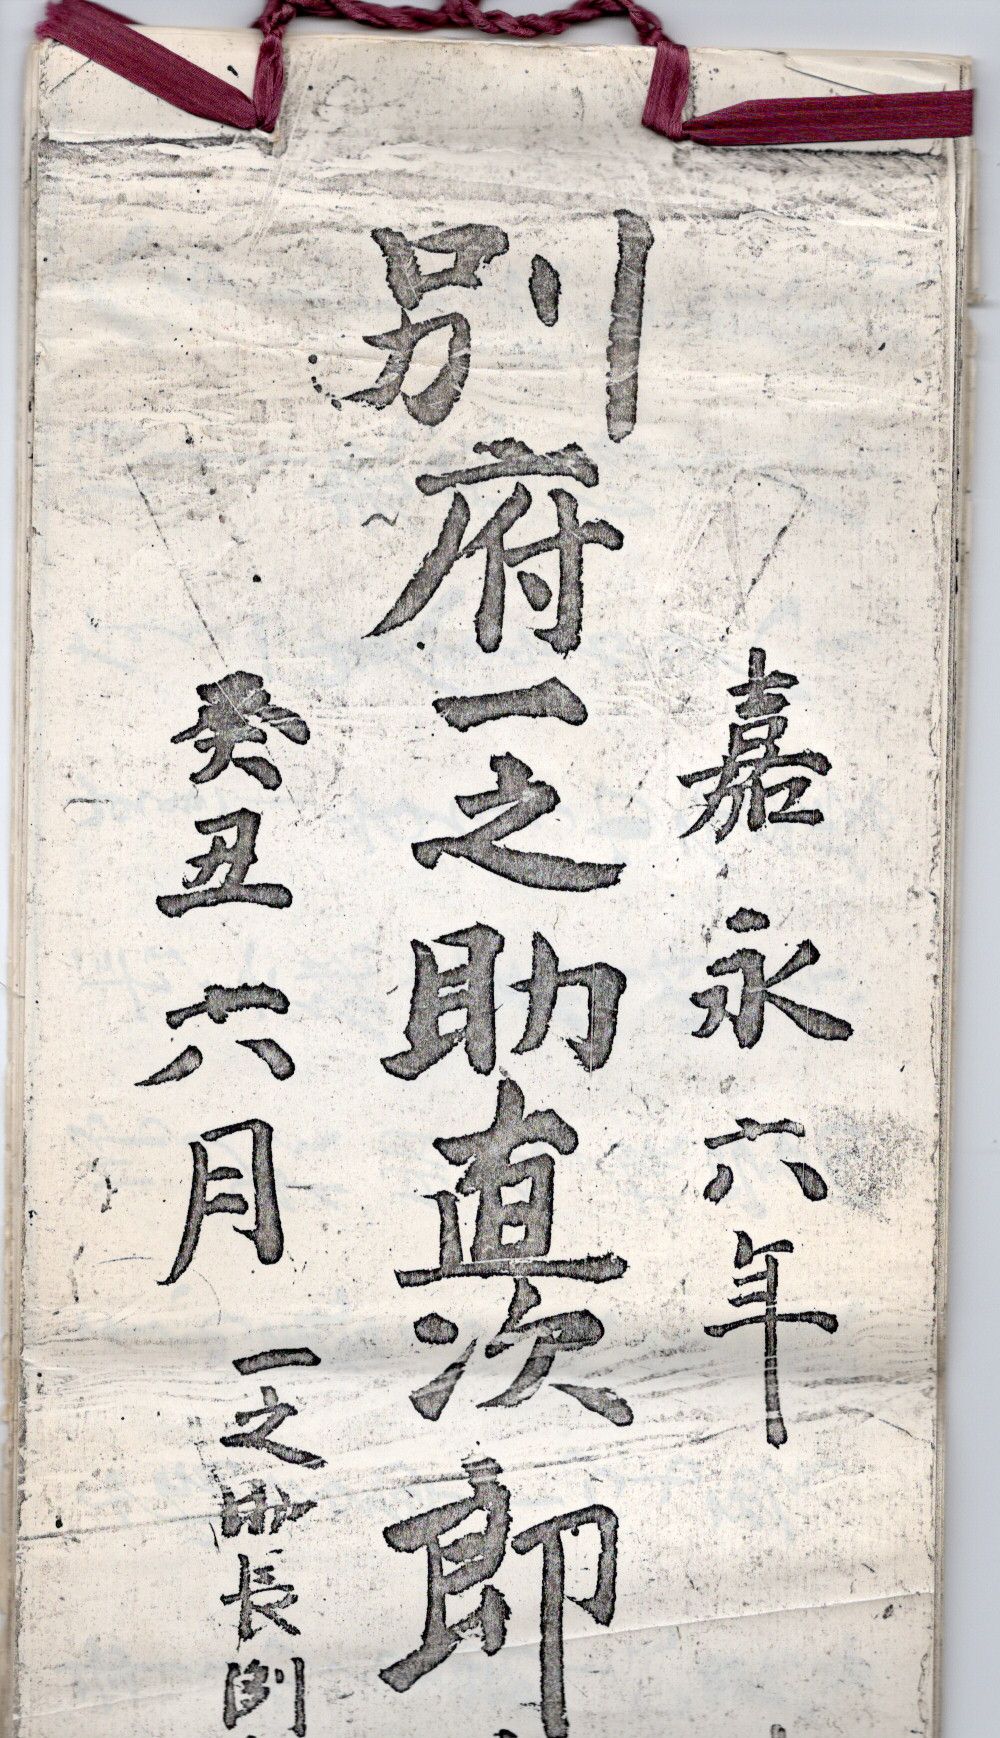 嘉永六年
別府一之助直次郎
癸丑六月
一之助長